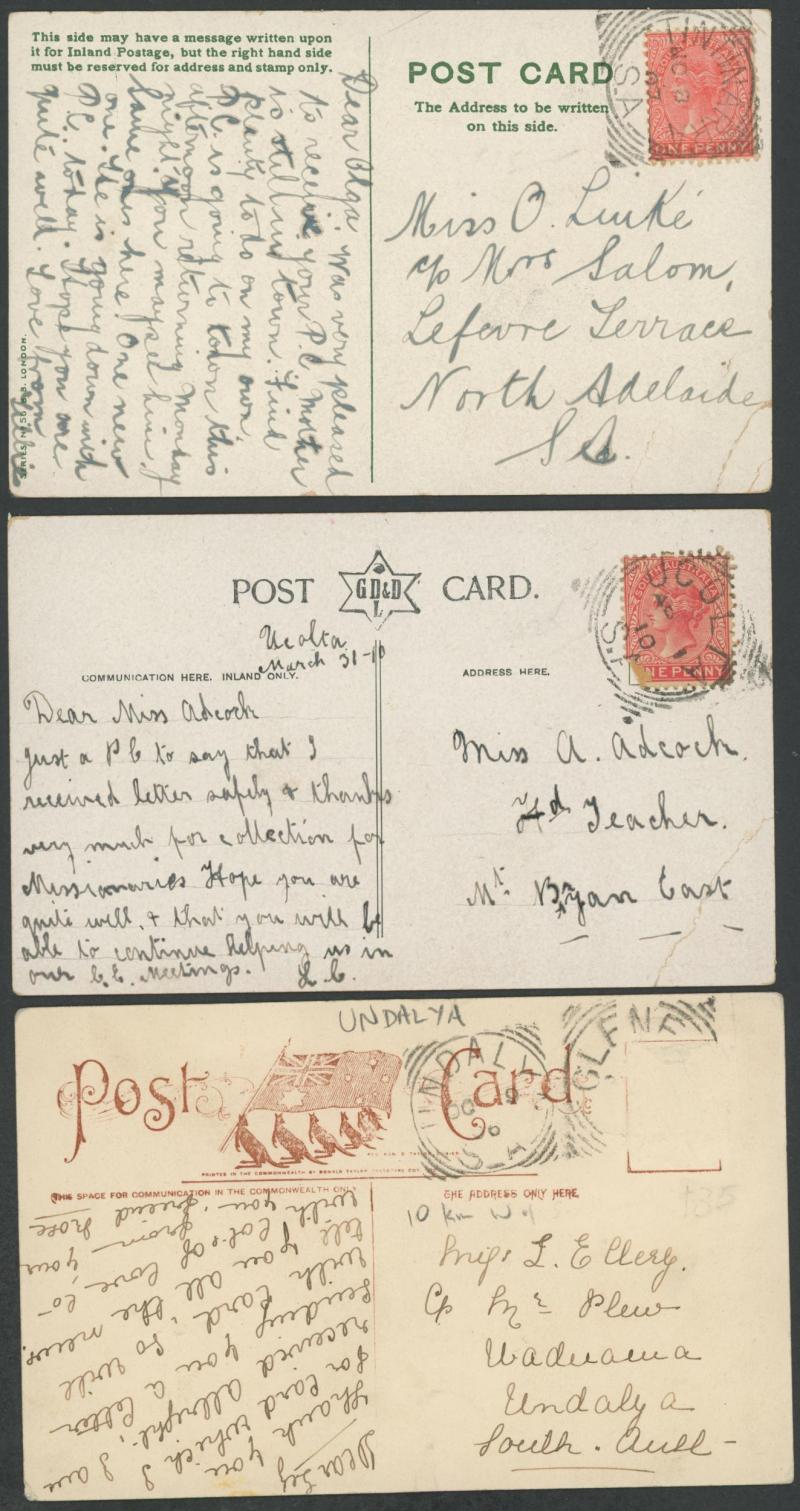 This side may have a message written upon
it for Inland Postage, but the right hand side
must be reserved for address and stamp only.
Dear Olga. Was very pleased
to receive your P.C. Mother
is still in town. Find
plenty to do on my own.
P.C. is going to town this
afternoon returning Monday
night. You may set him
same ones here. One new
one. She is going down with
P.C. today. Hope you are
quite well. Love from
SERIES No. 56 LONDON.
POST CARD
The Address to be written
on this side.
S.A
ONE PENNY
Miss O. Luiké
c/o Mrs Salom,
Lefevre Terrace
North Adelaide
S A.
POST GD&D L CARD.
Ucolta
March 31-10
COMMUNICATION HERE, INLAND ONLY.
ADDRESS HERE.
Dear Miss Adcock
Just a P C to say that I
received letter safely & thanks
very much for collection for
Missionaries Hope you are
quite well, & that you will be
able to continue helping us in
our C.E. Meetings. L.C.
UCOLTA
10
S.A
SOUTH AUSTRALIA
ONE PENNY
Miss A. Adcock.
Hd Teacher.
Mt. Bryan East
UNDALYA
Post Card
UNDALYA
OC 9
S.A
GLENE
PRINTED IN THE COMMONWEALTH BY
THIS SPACE FOR COMMUNICATION IN THE COMMONWEALTH ONLY
THE ADDRESS ONLY HERE.
10 km W of
Dear
Thank you
for card which I
received allright, I am
sending you a letter
with card, so will
tell you all the news.
Lots of love, to
you from your
Miss L. Ellery.
C/o Mr Plew
Waduama
Undalya
South. Aust-